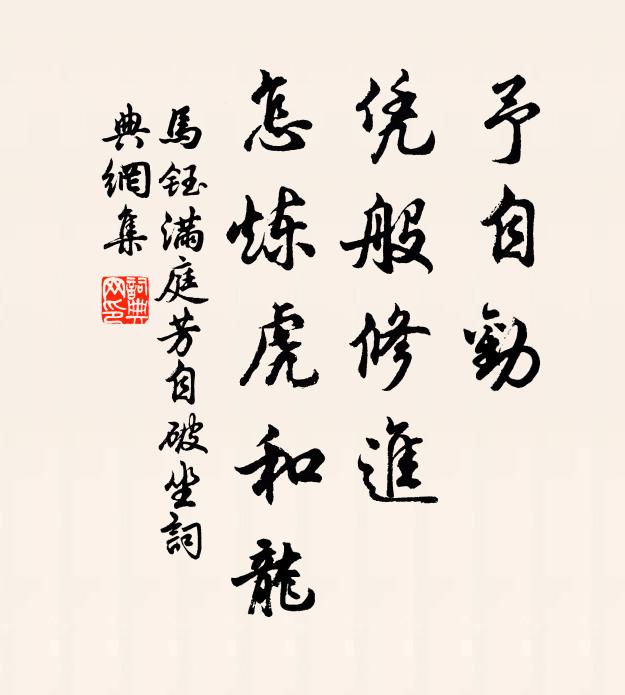 予自勸
凭般修進
怎炼虎和龍
馬鈺滿庭芳自破坐詞
典網集
詞典网印